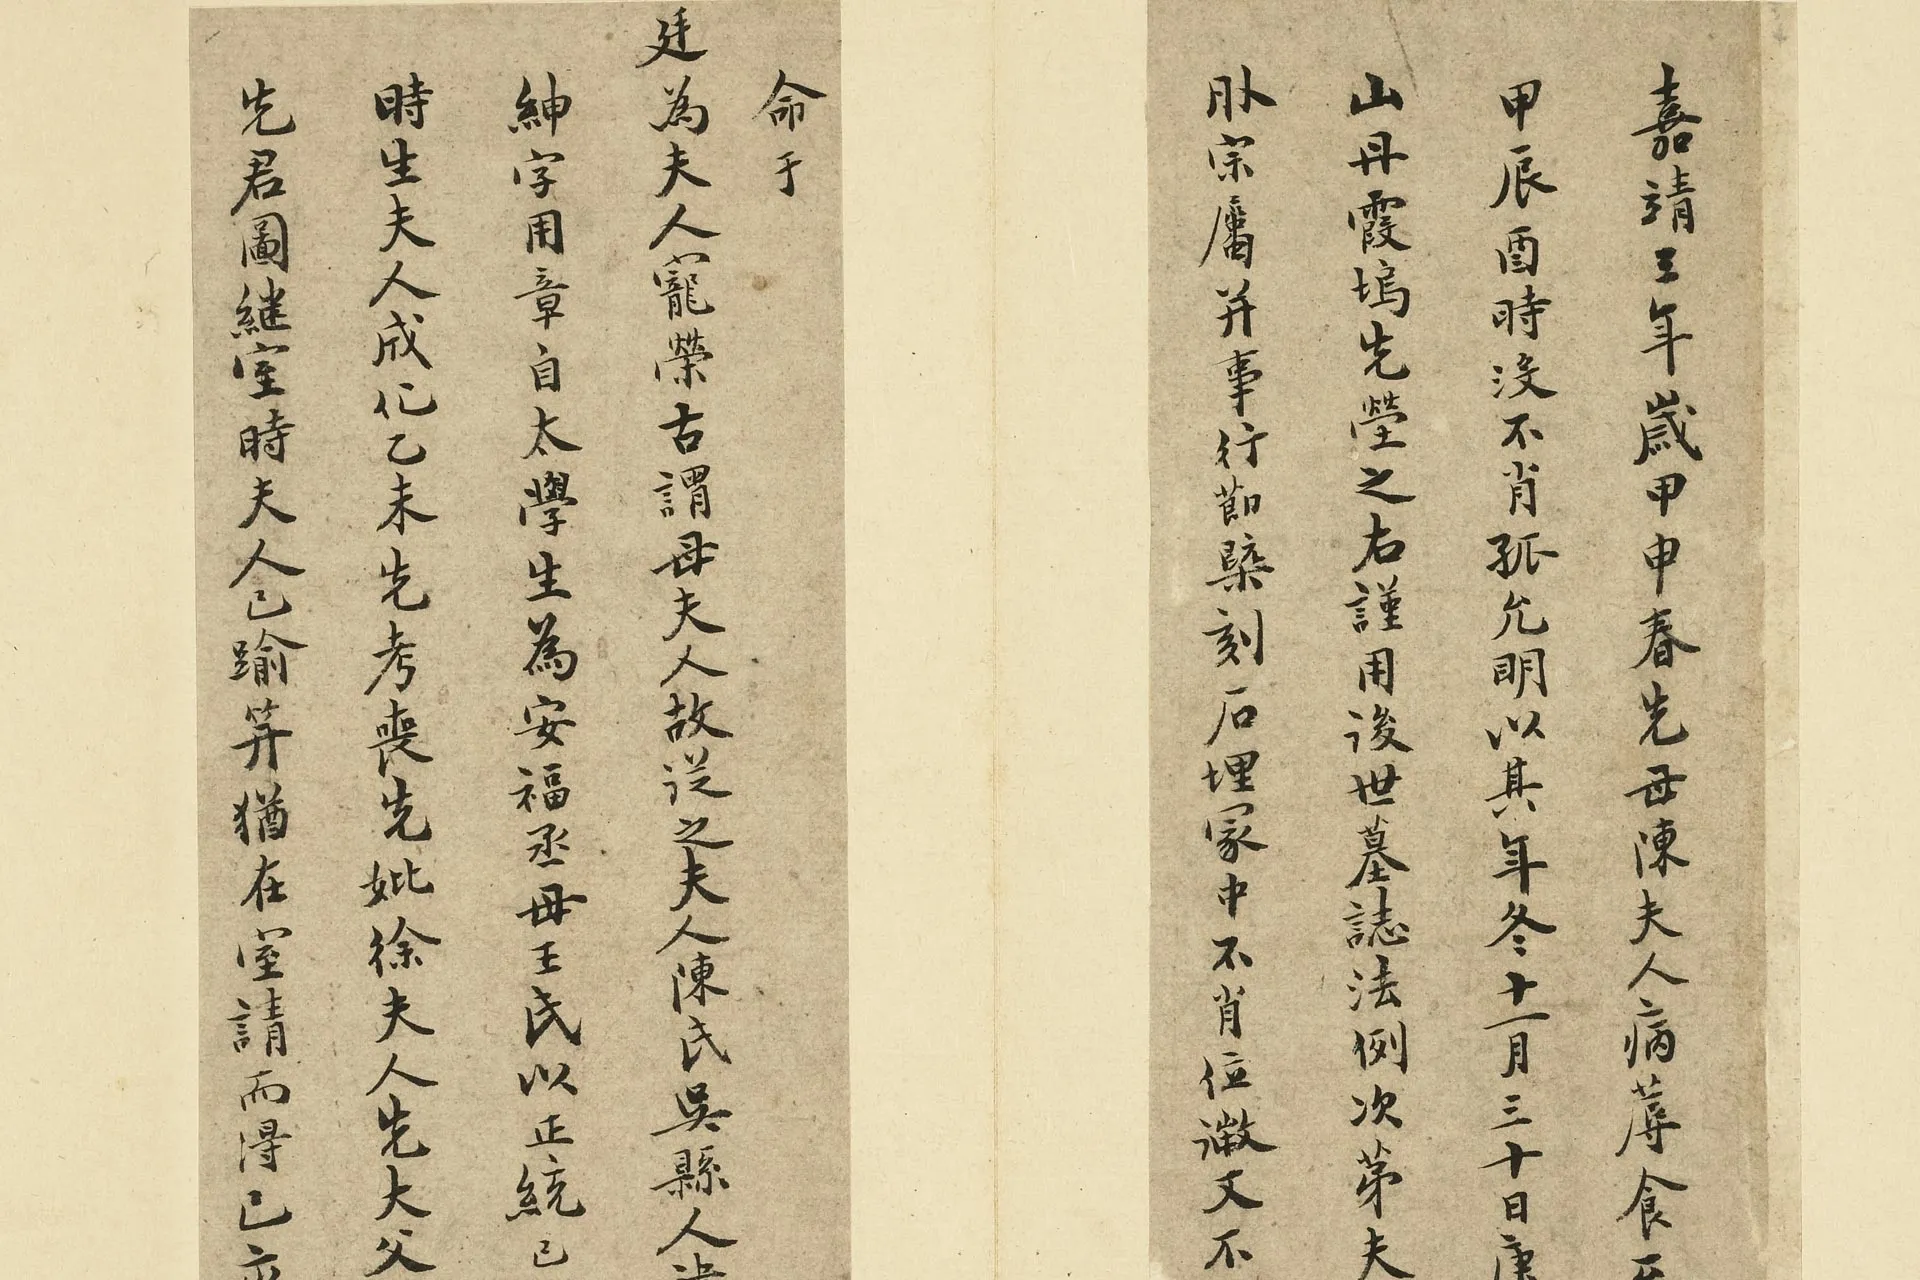 嘉靖三年歲甲申春先母陳夫人病蓐食
甲辰酉時沒不肖孤允明以其年冬十一月三十日庚
山丹霞塢先塋之右謹用後世墓誌法例次第夫
卧宗屬并事行節槩刻石埋冢中不肖位漵文不
命于
廷為夫人寵榮古謂母夫人故從之夫人陳氏吳縣人
紳字用章自太學生為安福丞母王氏以正統己
時生夫人成化乙未先考喪先妣徐夫人先大父
先君圖繼室時夫人已踰笄猶在室請而得已